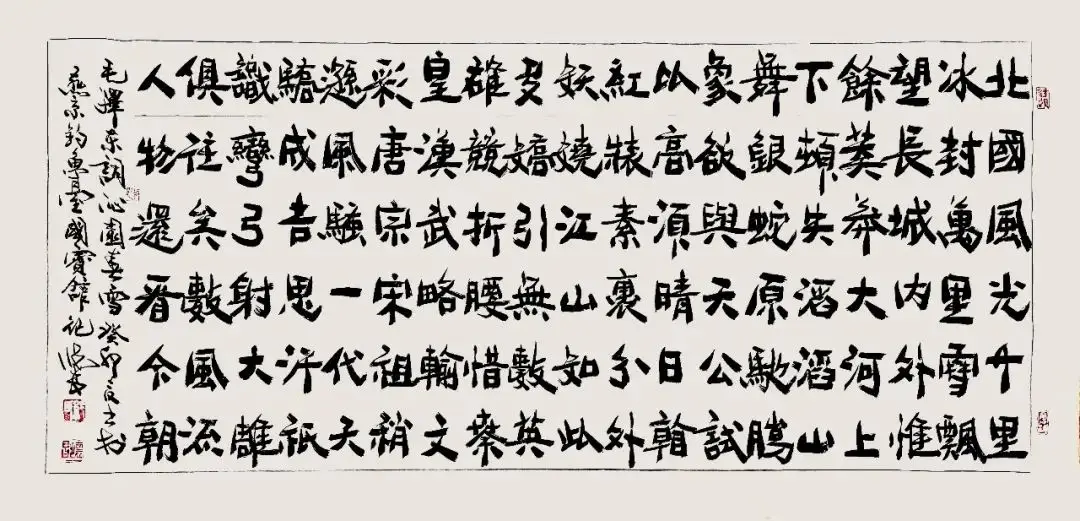 北國風光千里
冰封萬里雪飄
望長城内外惟
餘莽莽大河上
下頓失滔滔山
舞銀蛇原馳臘
象欲與天公試
比高須晴日看
紅裝素裹分外
妖嬈江山如此
多嬌引無數英
雄競折腰惜秦
皇漢武略輸文
彩唐宗宋祖稍
遜風騷一代天
驕成吉思汗祇
識彎弓射大雕
俱往矣數風流
人物還看今朝
毛澤東詞沁園春雪癸卯
燕京釣魚臺國賓館記